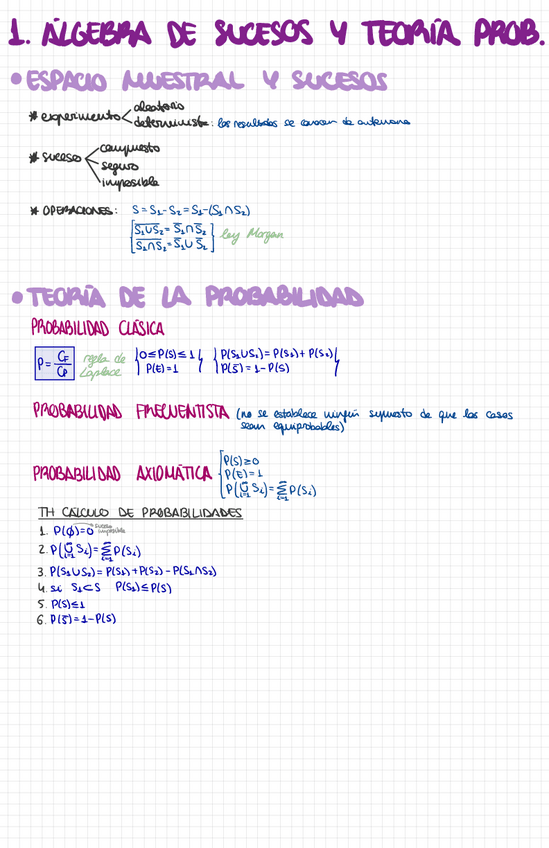 1. ÁLGEBRA DE SUCESOS Y TEORÍA PROB.
• ESPACIO MUESTRAL Y SUCESOS
* experimento < aleatorio
determinista: los resultados se conocen de antemano
* suceso < compuesto
seguro
imposible
* OPERACIONES: S = S₁-S₂ = S₁-(S₁∩S₂)
[S̅₁̅∪̅S̅₂̅ = S̅₁∩S̅₂
S̅₁̅∩̅S̅₂̅ = S̅₁∪S̅₂] ley Morgan
• TEORÍA DE LA PROBABILIDAD
PROBABILIDAD CLÁSICA
P = CF/CP regla de Laplace { 0≤P(S)≤1 } { P(S₁∪S₂)=P(S₁)+P(S₂) }
P(E)=1 P(S̅)=1-P(S)
PROBABILIDAD FRECUENTISTA (no se establece ningún supuesto de que los casos
sean equiprobables)
PROBABILIDAD AXIOMÁTICA [ P(S)≥0
P(E)=1
P(∞∪i=1 Si)=∞∑i=1 P(Si)
TH CÁLCULO DE PROBABILIDADES
1. P(ϕ)=0 suceso imposible
2. P(n∪i=1 Si)=n∑i=1 P(Si)
3. P(S₁∪S₂)=P(S₁)+P(S₂)-P(S₁∩S₂)
4. si S₁⊂S P(S₁)≤P(S)
5. P(S)≤1
6. P(S̅)=1-P(S)